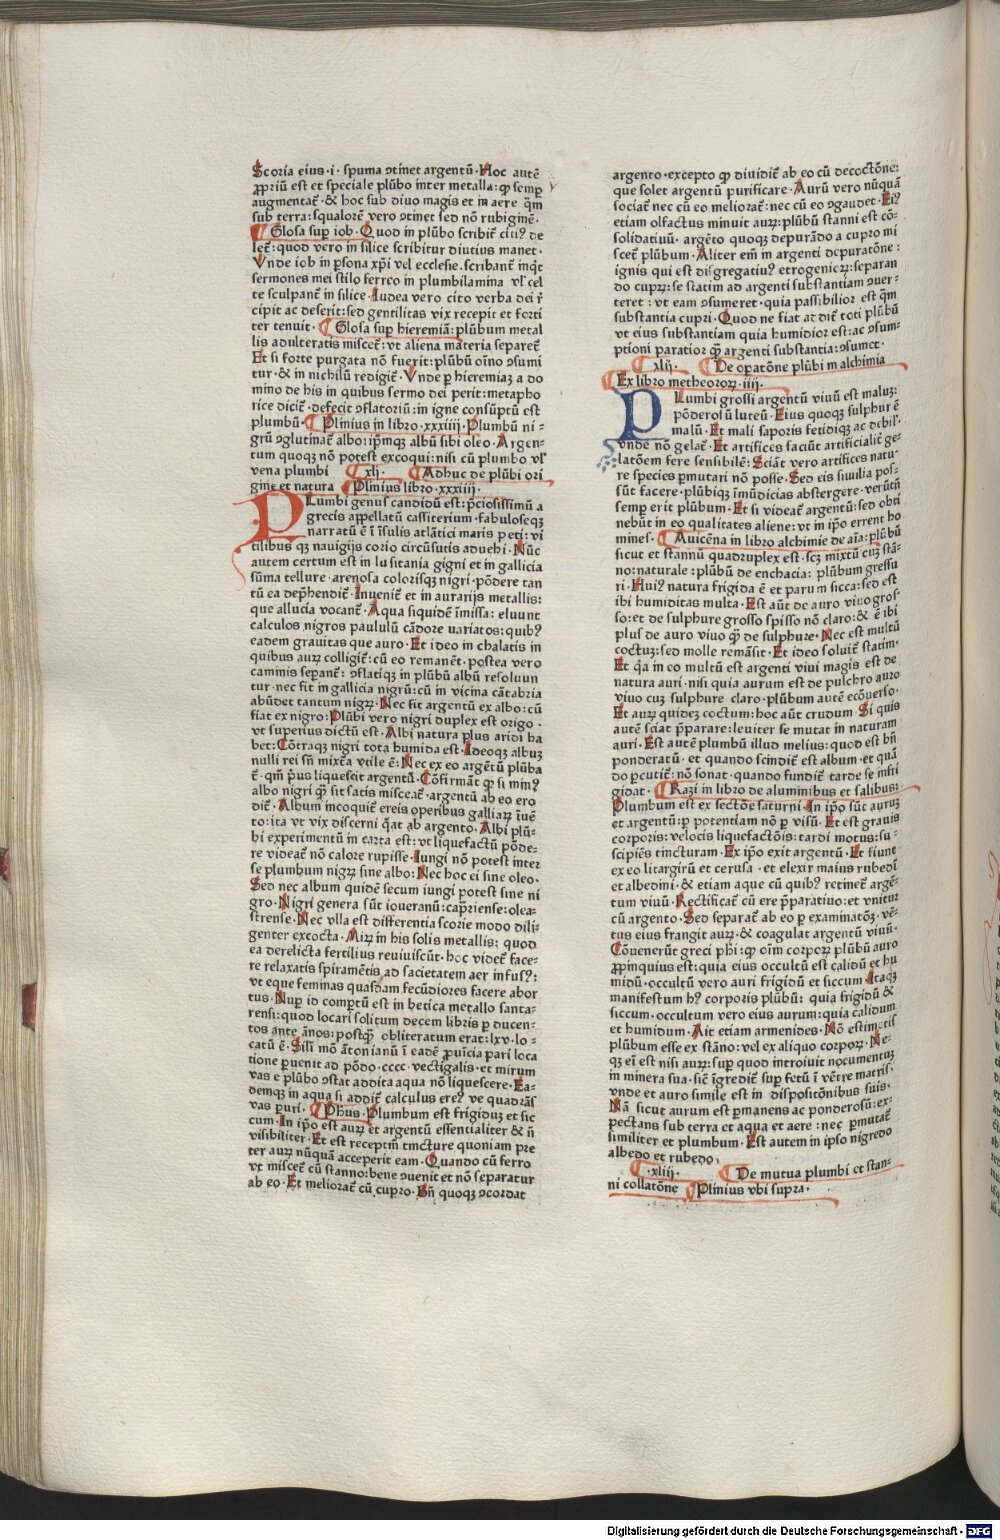 Scoria eius·i·spuma ↄtinet argentū·Hoc autē
ꝓpriū est et speciale plūbo inter metalla:ꝙ semꝑ
augmentat᷑·& hoc sub diuo magis et in aere q̄m
sub terra:squalorē vero ↄtinet sed nō rubiginē·
Glosa suꝑ iob·Quod in plūbo scribit᷑ citiꝰ de
let᷑:quod vero in silice scribitur diutius manet·
Vnde iob in ꝑsona xp̄i vel ecclesie·scribant᷑ inq̄t
sermones mei stilo ferreo in plumbilamina vl' cel
te sculpant᷑ in silice·Iudea vero cito verba dei r̄
cipit ac deserit:sed gentilitas vix recepit et forti
ter tenuit· Glosa suꝑ hieremiā:plūbum metal
lis adulteratis miscet᷑:vt aliena materia separet᷑
Et si forte purgata nō fuerit:plūbū oīno ↄsumi
tur·& in nichilū redigit᷑·Vnde ꝑ hieremiaꝫ a do
mino de his in quibus sermo dei perit:metapho
rice dicit᷑·defecit ↄflatoriū:in igne consūptū est
plumbū· Plinius in libro·xxxiiii·Plumbū ni-
grū ↄglutinat᷑ albo:ip̄mqꝫ albū sibi oleo·Argen-
tum quoqꝫ nō potest excoqui:nisi cū plumbo vl'
vena plumbi ·xlj· Adhuc de plūbi ori
gine et natura Plinius libro·xxxiiii·
PLumbi genus candidū est:p̄ciosissimū a
grecis appellatū cassiterium·fabuloseqꝫ
narratū ē ī īsulis atlātici maris peti:vi
tilibus qꝫ nauigijs corio circūsutis aduehi·Nūc
autem certum est in lusitania gigni et in gallicia
sūma tellure·arenosa colorisqꝫ nigri·pōdere tan
tū ea dep̄hendit᷑·Inuenit᷑ et in aurarijs metallis:
que allucia vocant᷑·Aqua siquidē īmissa:eluunt
calculos nigros paululū cādore uariatos:quibꝰ
eadem grauitas que auro·Et ideo in chalatis in
quibus auꝝ colligit᷑:cū eo remanet᷑·postea vero
caminis sepant᷑:ↄflatiqꝫ in plūbū albū resoluun
tur·nec fit in gallicia nigrū:cū in vicina cātabria
abūdet tantum nigꝝ·Nec fit argentū ex albo:cū
fiat ex nigro:Plūbi vero nigri duplex est origo·
vt superius dictū est·Albi natura plus aridi ha
bet:Cōtraqꝫ nigri tota humida est·Ideoqꝫ albuꝫ
nulli rei sn̄ mixta vtile ē:Nec ex eo argētū plūba
t᷑·qm̄ p̄us liquescit argentū·Cōfirmāt ꝙ si minꝰ
albo nigri qꝫ sit satis misceat᷑·argentū ab eo ero
dit᷑·Album incoquit᷑ ereis operibus galliaꝝ īuē
to:ita vt vix discerni q̄at ab argento·Albi plū-
bi experimentū in carta est:vt liquefactū pōde-
re videat᷑ nō calore rupisse·Iungi nō potest inter
se plumbum nigꝝ sine albo:Nec hoc ei sine oleo·
Sed nec album quidē secum iungi potest sine ni
gro·Nigri genera sūt ioueranū:cap̄riense:olea-
strense·Nec vlla est differentia scorie modo dili-
genter excocta·Miꝝ in his solis metallis:quod
ea derelicta fertilius reuiuiscūt·hoc videt᷑ face-
re relaxatis spiramētis ad sacietatem aer infusꝰ:
vt eque feminas quasdam fecūdiores facere abor
tus·Nuꝑ id comptū est in betica metallo santa-
rensi:quod locari solitum decem libris ꝑ ducen-
tos ante ānos:postqꝫ obliteratum erat:lxv·lo-
catū ē·Silī mō ātonianū ī eadē ꝓuīcia pari loca
tione ꝑuenit ad pōdo·cccc·vectigalis·et mirum
vas e plūbo ↄstat addita aqua nō liquescere·Ea-
demqꝫ in aqua si addit᷑ calculus ereꝰ ve quadrās
vas ꝑuri· Phūs·Plumbum est frigiduꝫ et sic
cum·In ip̄o est auꝝ et argentū essentialiter & n̄
visibiliter·Et est receptm̄ tincture quoniam pre
ter auꝝ nūquā acceperit eam·Quando cū ferro
vt miscet᷑ cū stanno:bene ↄuenit et nō separatur
ab eo·Et meliorat᷑ cū cupro·Bn̄ quoqꝫ ↄcordat
argento·excepto ꝙ diuidit᷑ ab eo cū decoctōne:
que solet argentū purificare·Aurū vero nūquā
sociat᷑ nec cū eo meliorat᷑:nec cū eo ↄgaudet·Eiꝰ
etiam olfactus minuit auꝝ:plūbū stanni est cō-
solidatiuū·argēto quoqꝫ depurādo a cupro mi
scet᷑ plūbum·Aliter em̄ in argenti depuratōne:
ignis qui est disgregatiuꝰ etrogenioꝝ:separan
do cupꝝ:se statim ad argenti substantiam ↄuer-
teret:vt eam ↄsumeret·quia passibilior est q̄m
substantia cupri·Quod ne fiat ad dit᷑ toti plūbū
vt eius substantiam quia humidior est:ac ↄsum-
ptioni paratior qꝫ argenti substantia:ↄsumet·
·xlij· De oꝑatōne plūbi in alchimia
Ex libro metheoroꝝ·iiij·
PLumbi grossi argentū viuū est maluꝫ:
pōderosū luteū·Eius quoqꝫ sulphur ē
malū·Et mali saporis fetidiqꝫ ac debil'·
vnde nō gelat᷑·Et artifices faciūt artificialit᷑ ge-
latōem fere sensibilē:Sciāt vero artifices natu-
re species ꝑmutari nō posse·Sed eis similia pos-
sūt facere·plūbiqꝫ īmūdicias abstergere·verūtn̄
semꝑ erit plūbum·Et si videat᷑ argentū:sed obti
nebūt in eo qualitates aliene:vt in ip̄o errent ho
mines· Auicēna in libro alchimie de aīa:plūbū
sicut et stannū quadruplex est·scꝫ mixtū cuꝫ stā-
no:naturale:plūbū de enchacia:plumbum gressu
ri·Huiꝰ natura frigida ē et parum sicca:sed est
ibi humiditas multa·Est aūt de auro viuo gros-
so:et de sulphure grosso spisso nō claro:& ē ibi
plus de auro viuo qꝫ de sulphure·Nec est multū
coctuꝫ:sed molle remāsit·Et ideo soluit᷑ statim·
Et q̄a in eo multū est argenti viui magis est de
natura auri·nisi quia aurum est de pulchro auro
viuo cuꝫ sulphure claro·plūbum autē ecōuerso·
Et auꝝ quideꝫ coctum:hoc aūt crudum·Si quis
autē sciat p̄parare:leuiter se mutat in naturam
auri·Est autē plumbū illud melius:quod est bn̄
ponderatū·et quando scindit᷑ est album·et quā
do ꝑcutit᷑:nō sonat·quando fundit᷑ tarde se infri
gidat· Razi in libro de aluminibus et salibus:
Plumbum est ex sectōe saturni·In ip̄o sūt auruꝫ
et argentū:ꝑ potentiam nō ꝑ visū·Et est grauis
corporis:velocis liquefactōis:tardi motus:su-
scipiēs tincturam·Ex ip̄o exit argentū·Et fiunt
ex eo litargirū et cerusa·et elexir maius rubedī
et albedini·& etiam aque cū quibꝰ retinet᷑ argē-
tum viuū·Rectificat᷑ cū ere p̄paratiuo:et vnitur
cū argento·Sed separat᷑ ab eo ꝑ examinatōꝫ·vē-
tus eius frangit auꝝ·& coagulat argentū viuū·
Cōuenerūt greci phī:ꝙ oīm corpoꝝ plūbū auro
ꝓpinquius est:quia eius occultū est calidū et hu
midū·occultū vero auri frigidū et siccum·Itaqꝫ
manifestum hꝰ corporis plūbū: quia frigidū &
siccum·occultum vero eius aurum:quia calidum
et humidum·Ait etiam armenides·Nō estimetis
plūbum esse ex stāno:vel ex aliquo corpoꝝ·Ne-
qꝫ eī est nisi auꝝ:suꝑ quod introiuit nocumentuꝫ
in minera sua·sic̄ īgredit᷑ suꝑ fetū ī vētre matris·
vnde et auro simile est in dispositōnibus suis·
Nā sicut aurum est ꝑmanens ac ponderosū:ex-
pectans sub terra et aqua et aere:nec ꝑmutat᷑
similiter et plumbum·Est autem in ipso nigredo
albedo et rubedo·
·xliij· De mutua plumbi et stan-
ni collatōne Plinius vbi supra·
Digitalisierung gefördert durch die Deutsche Forschungsgemeinschaft - DFG